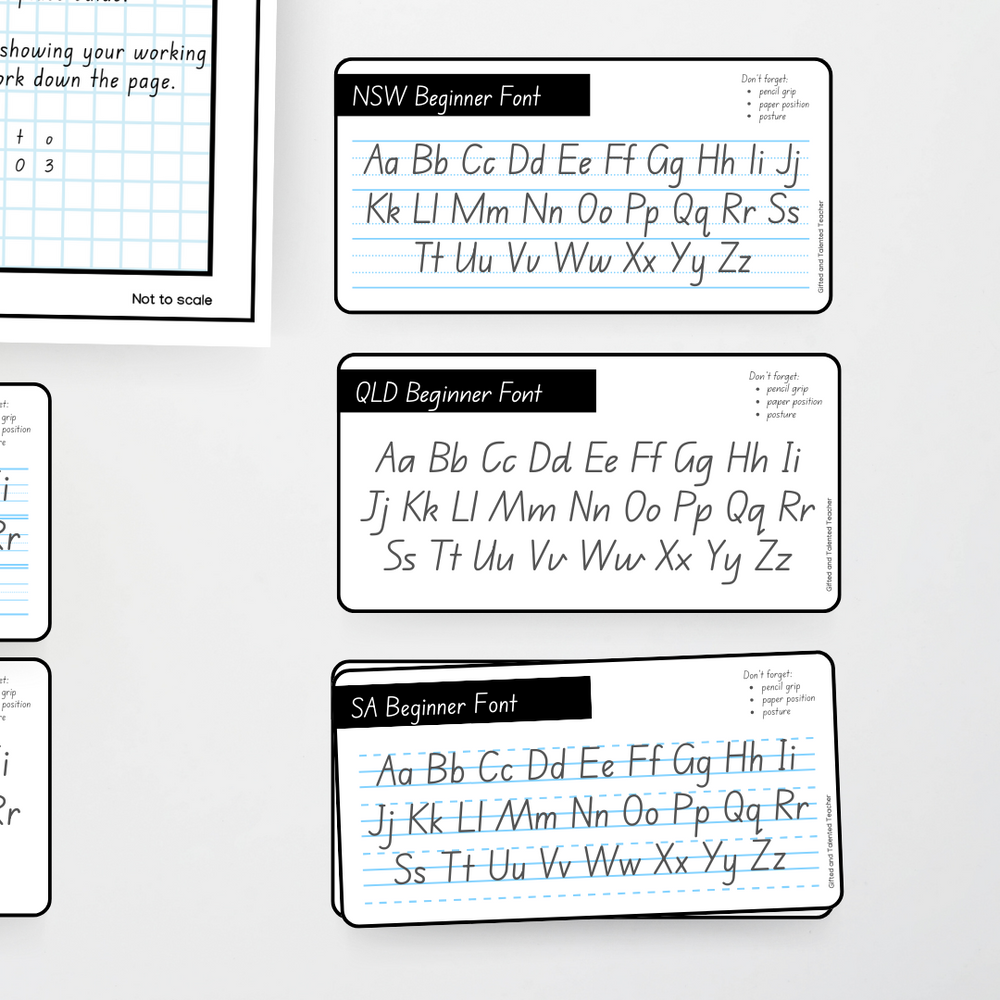 showing your working
down the page.
t o
0 3
Not to scale
grip
position
i
Rr
grip
position
i
Rr
NSW Beginner Font
Don't forget:
• pencil grip
• paper position
• posture
Aa Bb Cc Dd Ee Ff Gg Hh Ii Jj
Kk Ll Mm Nn Oo Pp Qq Rr Ss
Tt Uu Vv Ww Xx Yy Zz
Gifted and Talented Teacher
QLD Beginner Font
Don't forget:
• pencil grip
• paper position
• posture
Aa Bb Cc Dd Ee Ff Gg Hh Ii
Jj Kk Ll Mm Nn Oo Pp Qq Rr
Ss Tt Uu Vv Ww Xx Yy Zz
Gifted and Talented Teacher
SA Beginner Font
Don't forget:
• pencil grip
• paper position
• posture
Aa Bb Cc Dd Ee Ff Gg Hh Ii
Jj Kk Ll Mm Nn Oo Pp Qq Rr
Ss Tt Uu Vv Ww Xx Yy Zz
Gifted and Talented Teacher